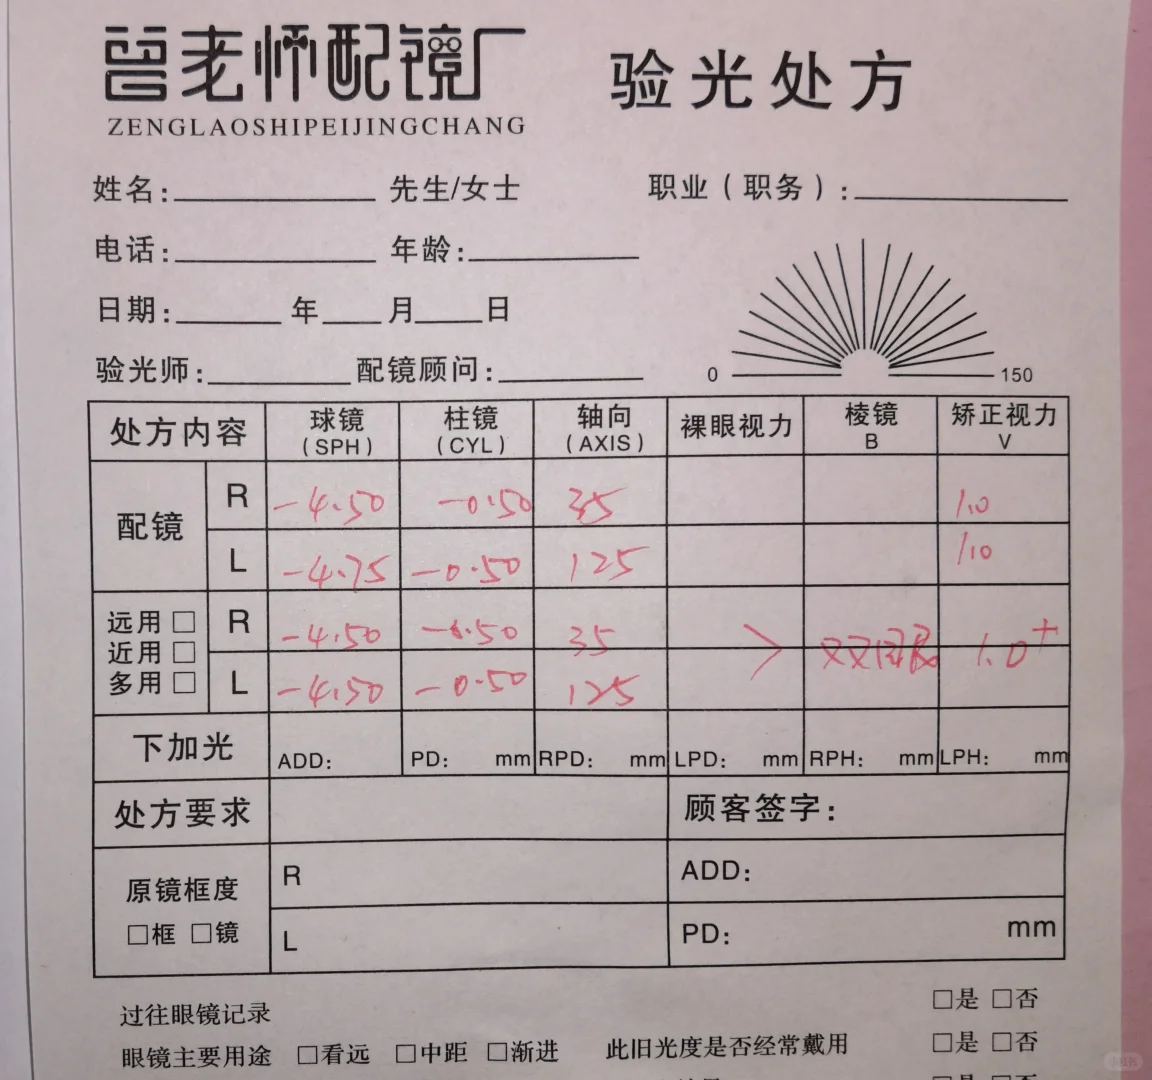 曾老师配镜厂
ZENGLAOSHIPEIJINGCHANG
验光处方
姓名： 先生/女士 职业（职务）：
电话： 年龄：
日期： 年 月 日
验光师： 配镜顾问：
0 150
处方内容 球镜(SPH) 柱镜(CYL) 轴向(AXIS) 裸眼视力 棱镜B 矫正视力V
配镜 R -4.50 -0.50 35 1.0
L -4.75 -0.50 125 1.0
远用□ 近用□ 多用□ R -4.50 -0.50 35
L -4.50 -0.50 125
1.0+
下加光 ADD： PD： mm RPD： mm LPD： mm RPH： mm LPH： mm
处方要求 顾客签字：
原镜框度 □框 □镜 R ADD：
L PD： mm
过往眼镜记录 □是 □否
眼镜主要用途 □看远 □中距 □渐进 此旧光度是否经常戴用 □是 □否